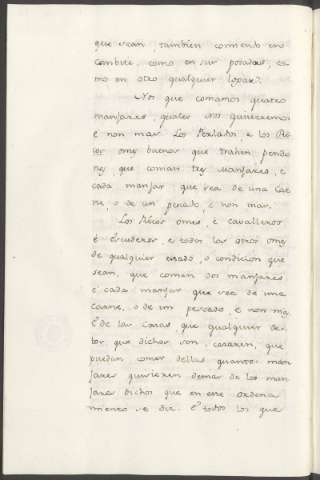 que vean, tambien comiendo en
combite, como en sur posadas, co
mo en otro qualquier logar.
Nos que comamos quatro
manjares, quales nos quisieremos
e non mas. Los Perlados, e los Ri
cos omes buenos que trahen pendo
nes, que coman tres manjares, e
cada manjar que sea de una car
ne, o de un pescado, e non mas.
Los Ricos omes, e cavalleros,
e Escuderos, e todos los otros omes
de qualquier estado, o condicion que
sean, que coman dos manjares
e cada manjar que sea de una
carne, o de un pescado, e non mas
E de las cosas, que qualquier de
los que dichos son, casaren, que
puedan comer dellas quantos man
jares quisieren demas de los man
jares dichos que en este ordena
miento se dic. E todos los que